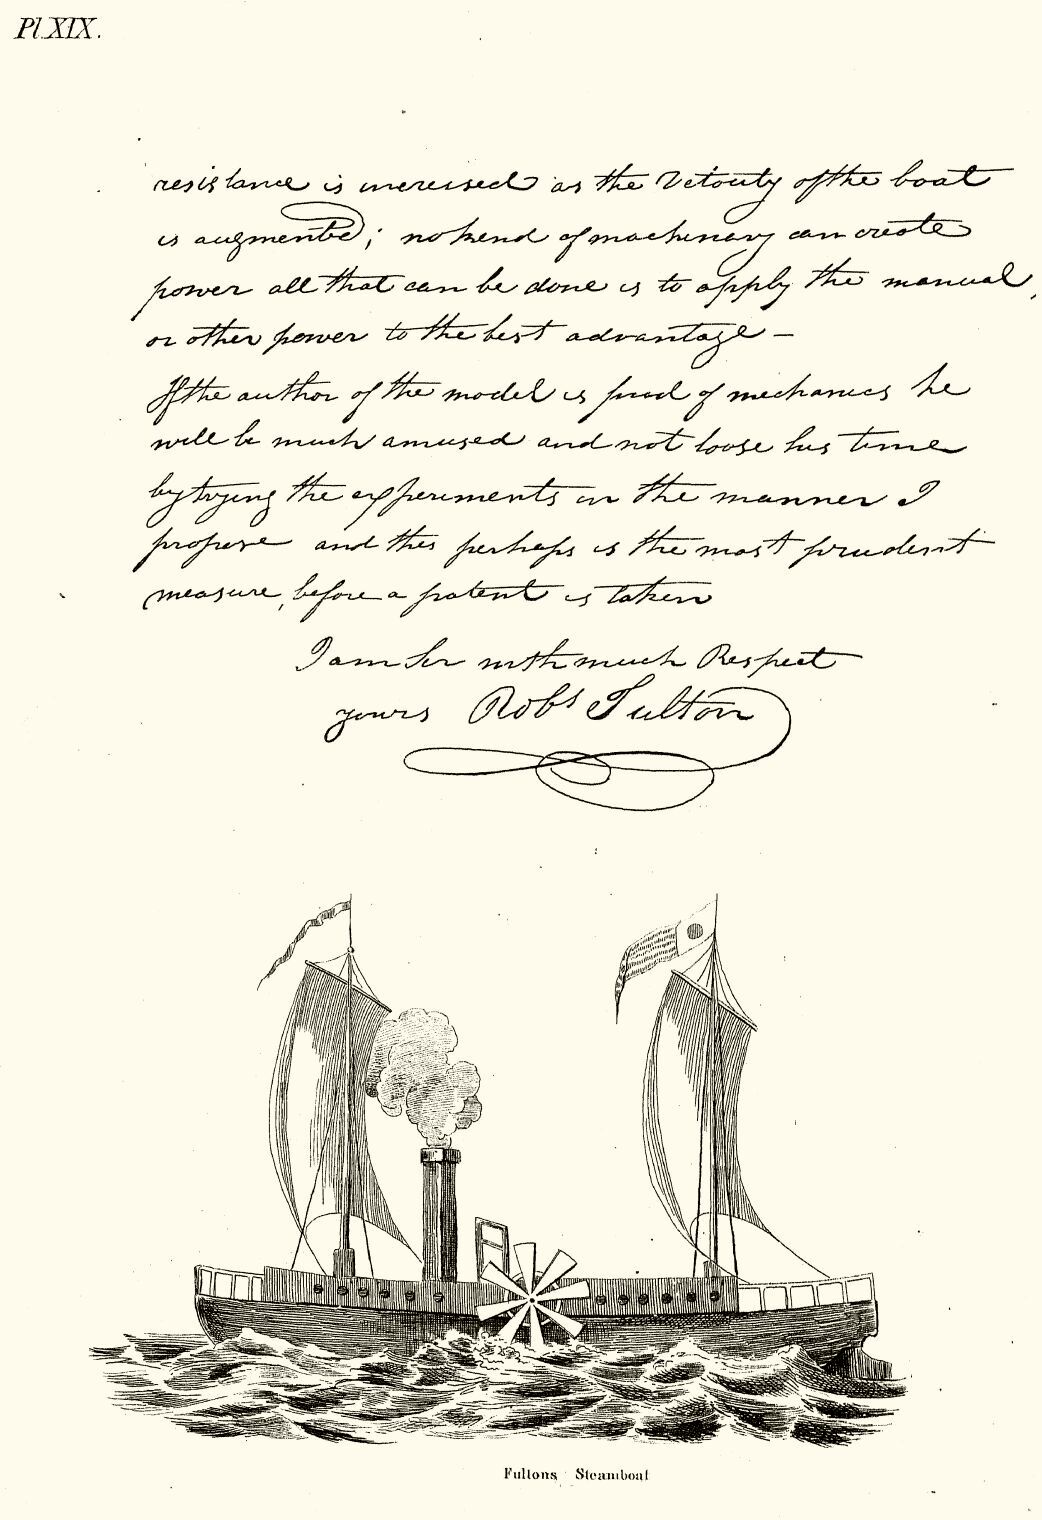 Pl. XIX.
resistance is increased as the Velocity of the boat
is augmented; no kend of machinery can create
power all that can be done is to apply the manual,
or other power to the best advantage —
If the author of the model is fond of mechanics he
will be much amused and not loose his time
by trying the experiments in the manner I
propose and this perhaps is the most prudent
measure, before a patent is taken
I am Sir with much Respect
yours Robt Fulton
Fultons Steamboat